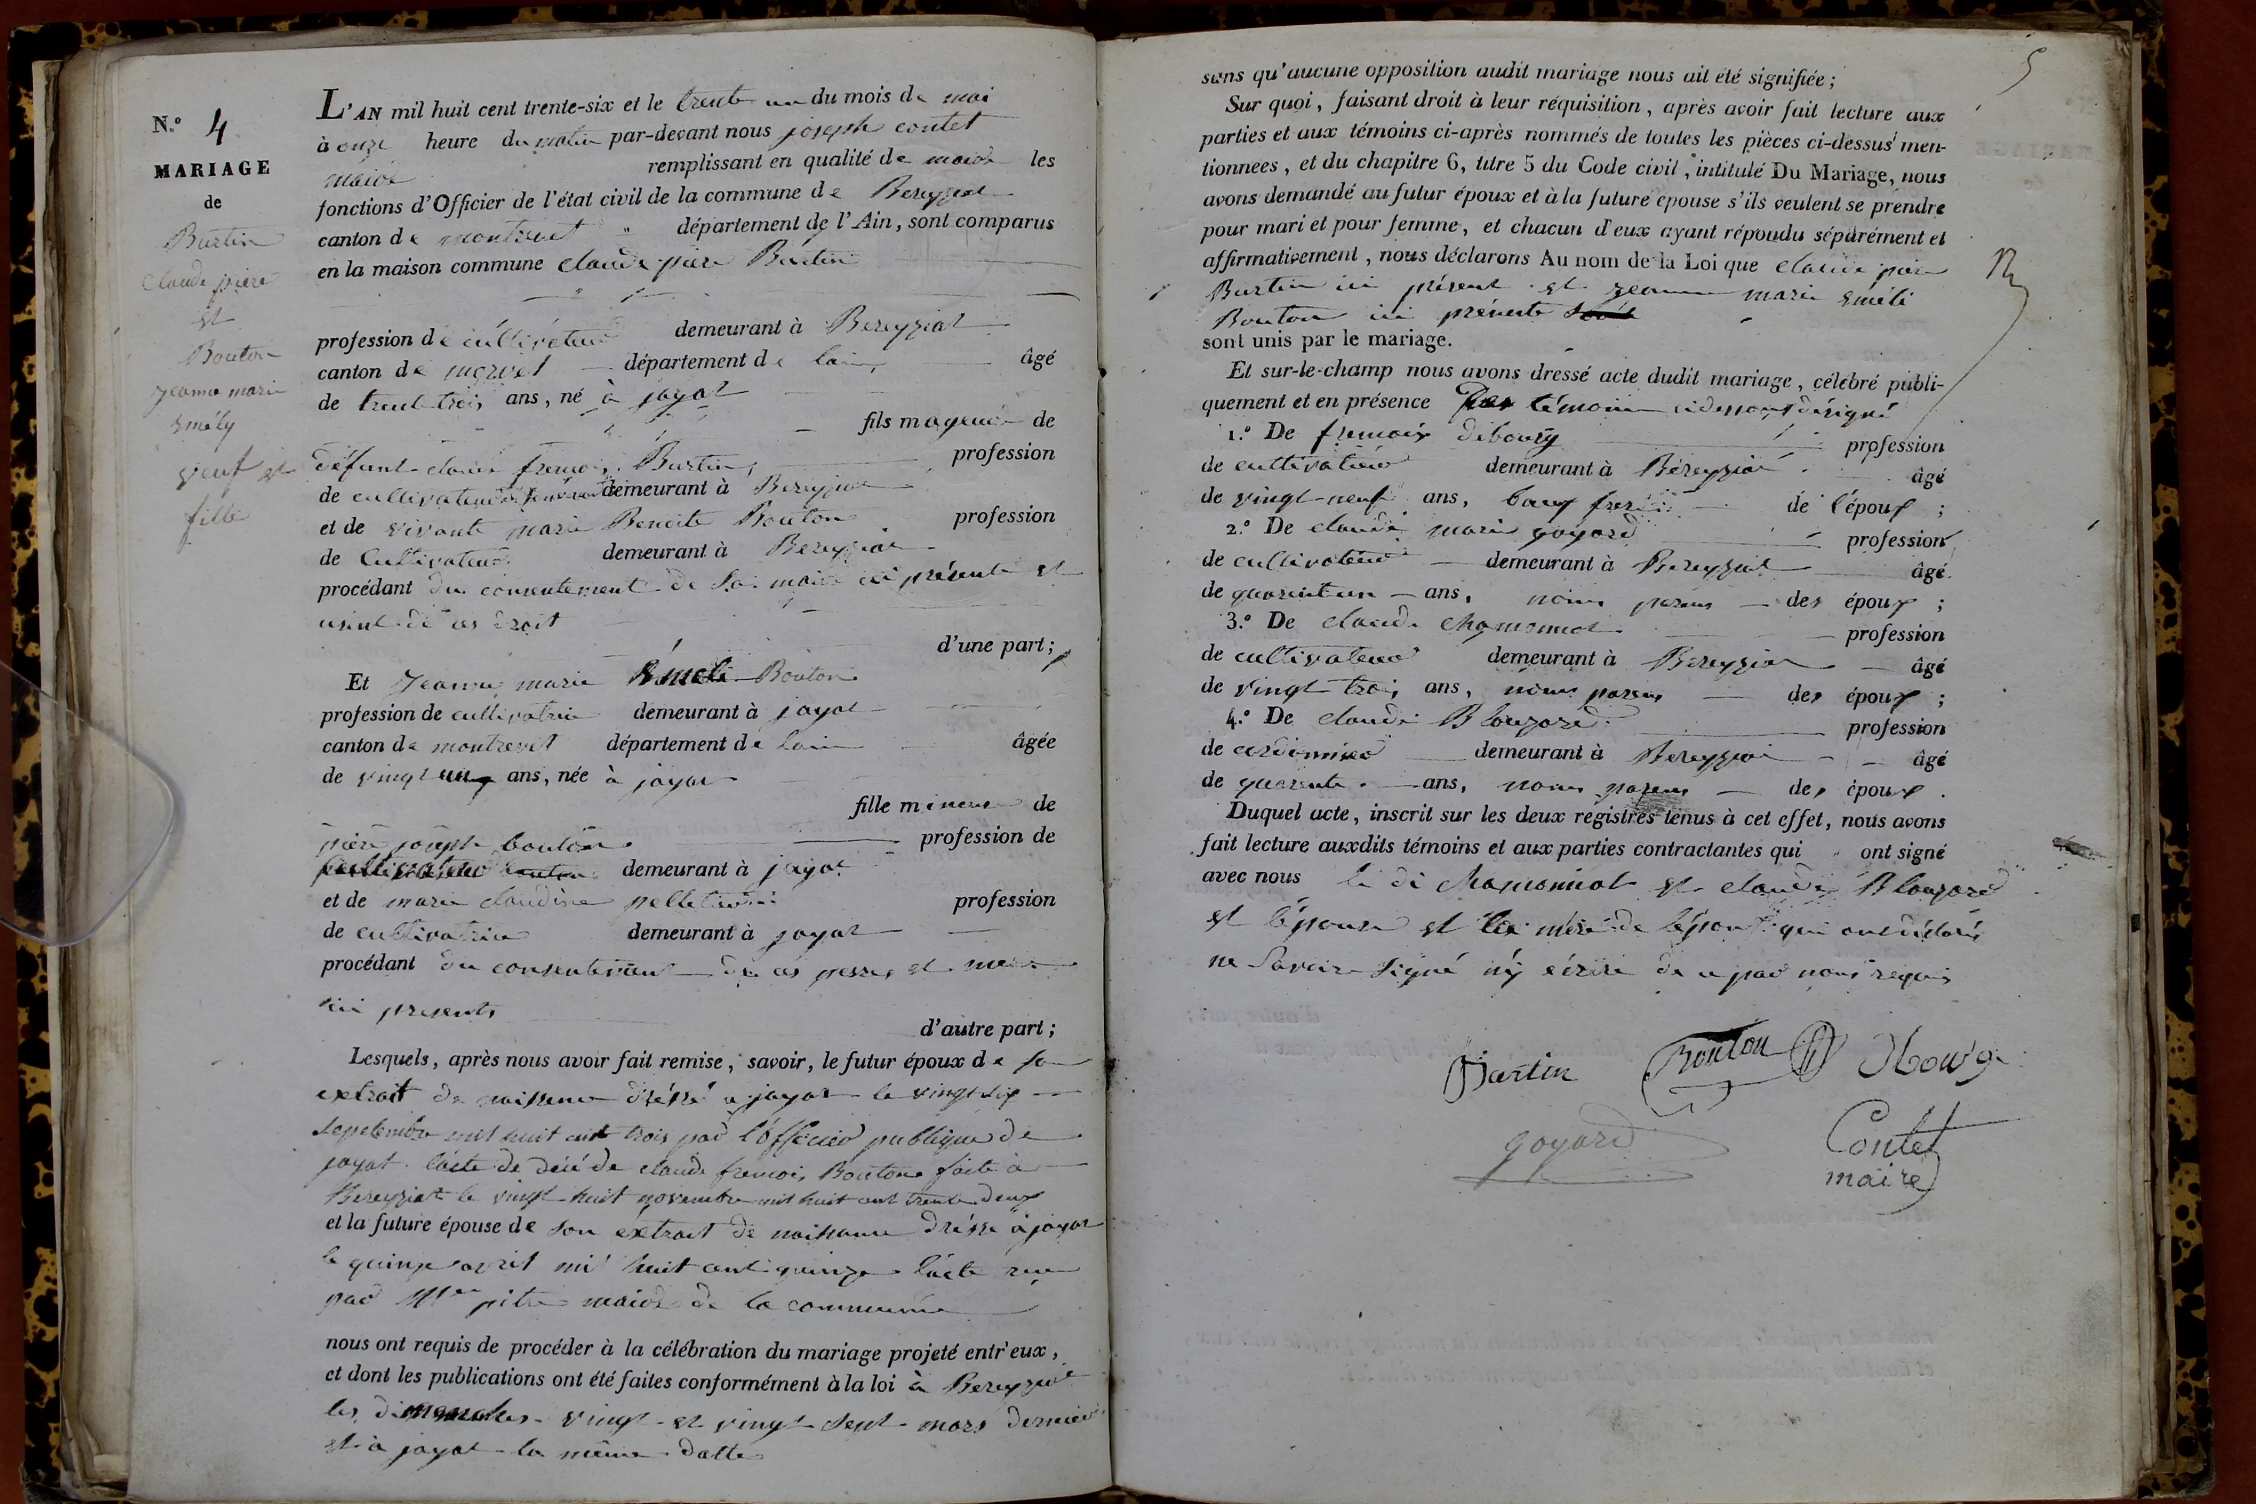 N.º 4
MARIAGE
de
Burtin
Claude piere
et
Bouton
jeanne marie
émély
veuf et
fille
L'AN mil huit cent trente-six et le trente un du mois de mai
à onze heure du matin par-devant nous joseph contet
maire remplissant en qualité de maire les
fonctions d'Officier de l'état civil de la commune de Bereyziat
canton de montrevet département de l'Ain, sont comparus
en la maison commune claude piere Burtin
profession de cultivateur demeurant à Bereyziat
canton de département de lain, âgé
de trente trois ans, né à jayat
fils mageur de
défunt claude francois Burtin, profession
de cultivateur demeurant à Bereyziat
et de vivante marie Benoite Bouton profession
de Cultivateur demeurant à Bereyziat
procédant du consentement de sa maire ici présente et
usent de ces droit
d'une part;
Et jeanne marie éméli Bouton
profession de cultivatrice demeurant à jayat
canton de montrevet département de lain âgée
de vingt un ans, née à jayat
fille mineure de
piere joseph bouton profession de
cultivateur demeurant à jayat
et de marie claudine profession
de cultivatrice demeurant à jayat
procédant du consentement de ces peres et mere
ici presents
d'autre part;
Lesquels, après nous avoir fait remise, savoir, le futur époux de son
extrait de naissence dréssé a jayat le vingt six
sepetembre mil huit cent trois par l'officier publique de
jayat. l'acte de décé de claude francois Bouton faite à
Bereyziat le vingt huit novembre mil huit cent trente deux
et la future épouse de son extrait de naissance drésse à jayat
le quinze avril mil huit cent quinze l'acte
par Mr maire de la commune
nous ont requis de procéder à la célébration du mariage projeté entr'eux,
et dont les publications ont été faites conformément à la loi à Bereyziat
les dimanches vingt et vingt sept mars dernier
et à jayat la même datte
5
sans qu'aucune opposition audit mariage nous ait été signifiée;
Sur quoi, faisant droit à leur réquisition, après avoir fait lecture aux
parties et aux témoins ci-après nommés de toutes les pièces ci-dessus men-
tionnées, et du chapitre 6, titre 5 du Code civil, intitulé Du Mariage, nous
avons demandé au futur époux et à la future épouse s'ils veulent se prendre
pour mari et pour femme, et chacun d'eux ayant répondu séparément et
affirmativement, nous déclarons Au nom de la Loi que claude piere
Burtin ici présent et jeanne marie éméli
Bouton ici présente
sont unis par le mariage.
Et sur-le-champ nous avons dressé acte dudit mariage, célébré publi-
quement et en présence des témoins cidessous désigné
1.º De francois debourg profession
de cultivateur demeurant à Béreyziat âgé
de vingt neuf ans, baux frere de l'époux;
2.º De claude marie goyard profession
de cultivateur demeurant à Bereyziat âgé
de quarentun ans, noins parens des époux;
3.º De claude chamonnot profession
de cultivateur demeurant à Bereyziat âgé
de vingt trois ans, noins parens des époux;
4.º De claude Blouzard profession
de cordonnier demeurant à Bereyziat âgé
de quarente ans, noins parens des époux.
Duquel acte, inscrit sur les deux registres tenus à cet effet, nous avons
fait lecture auxdits témoins et aux parties contractantes qui ont signé
avec nous le di Chamonnot et claude Blouzard
et l'épouse et la mere de l'époux qui ont déclarés
ne Savoir signé n'y écrire de ce par nous requis
Bouton
goyard
Contet
maire